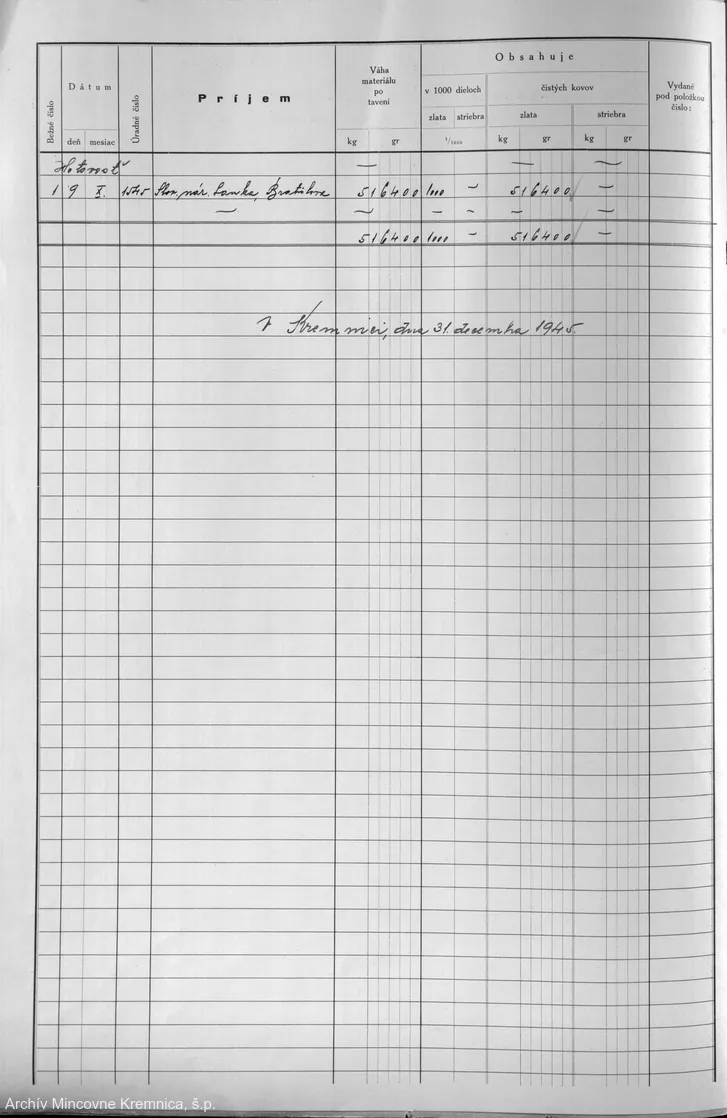 Bežné číslo
Dátum
deň mesiac
Úradné číslo
Príjem
Váha
materiálu
po
tavení
kg gr
Obsahuje
v 1000 dieloch
zlata striebra
¹/₁₀₀₀
čistých kovov
zlata striebra
kg gr kg gr
Vydané
pod položkou
číslo:
Hotovosť — — —
1 9 X. Slov. nár. banka, Bratislava 516400 1000 — 516400 —
— — — — — —
516400 1000 — 516400 —
V Kremnici, dna 31. decembra 1945.
Archív Mincovne Kremnica, š.p.